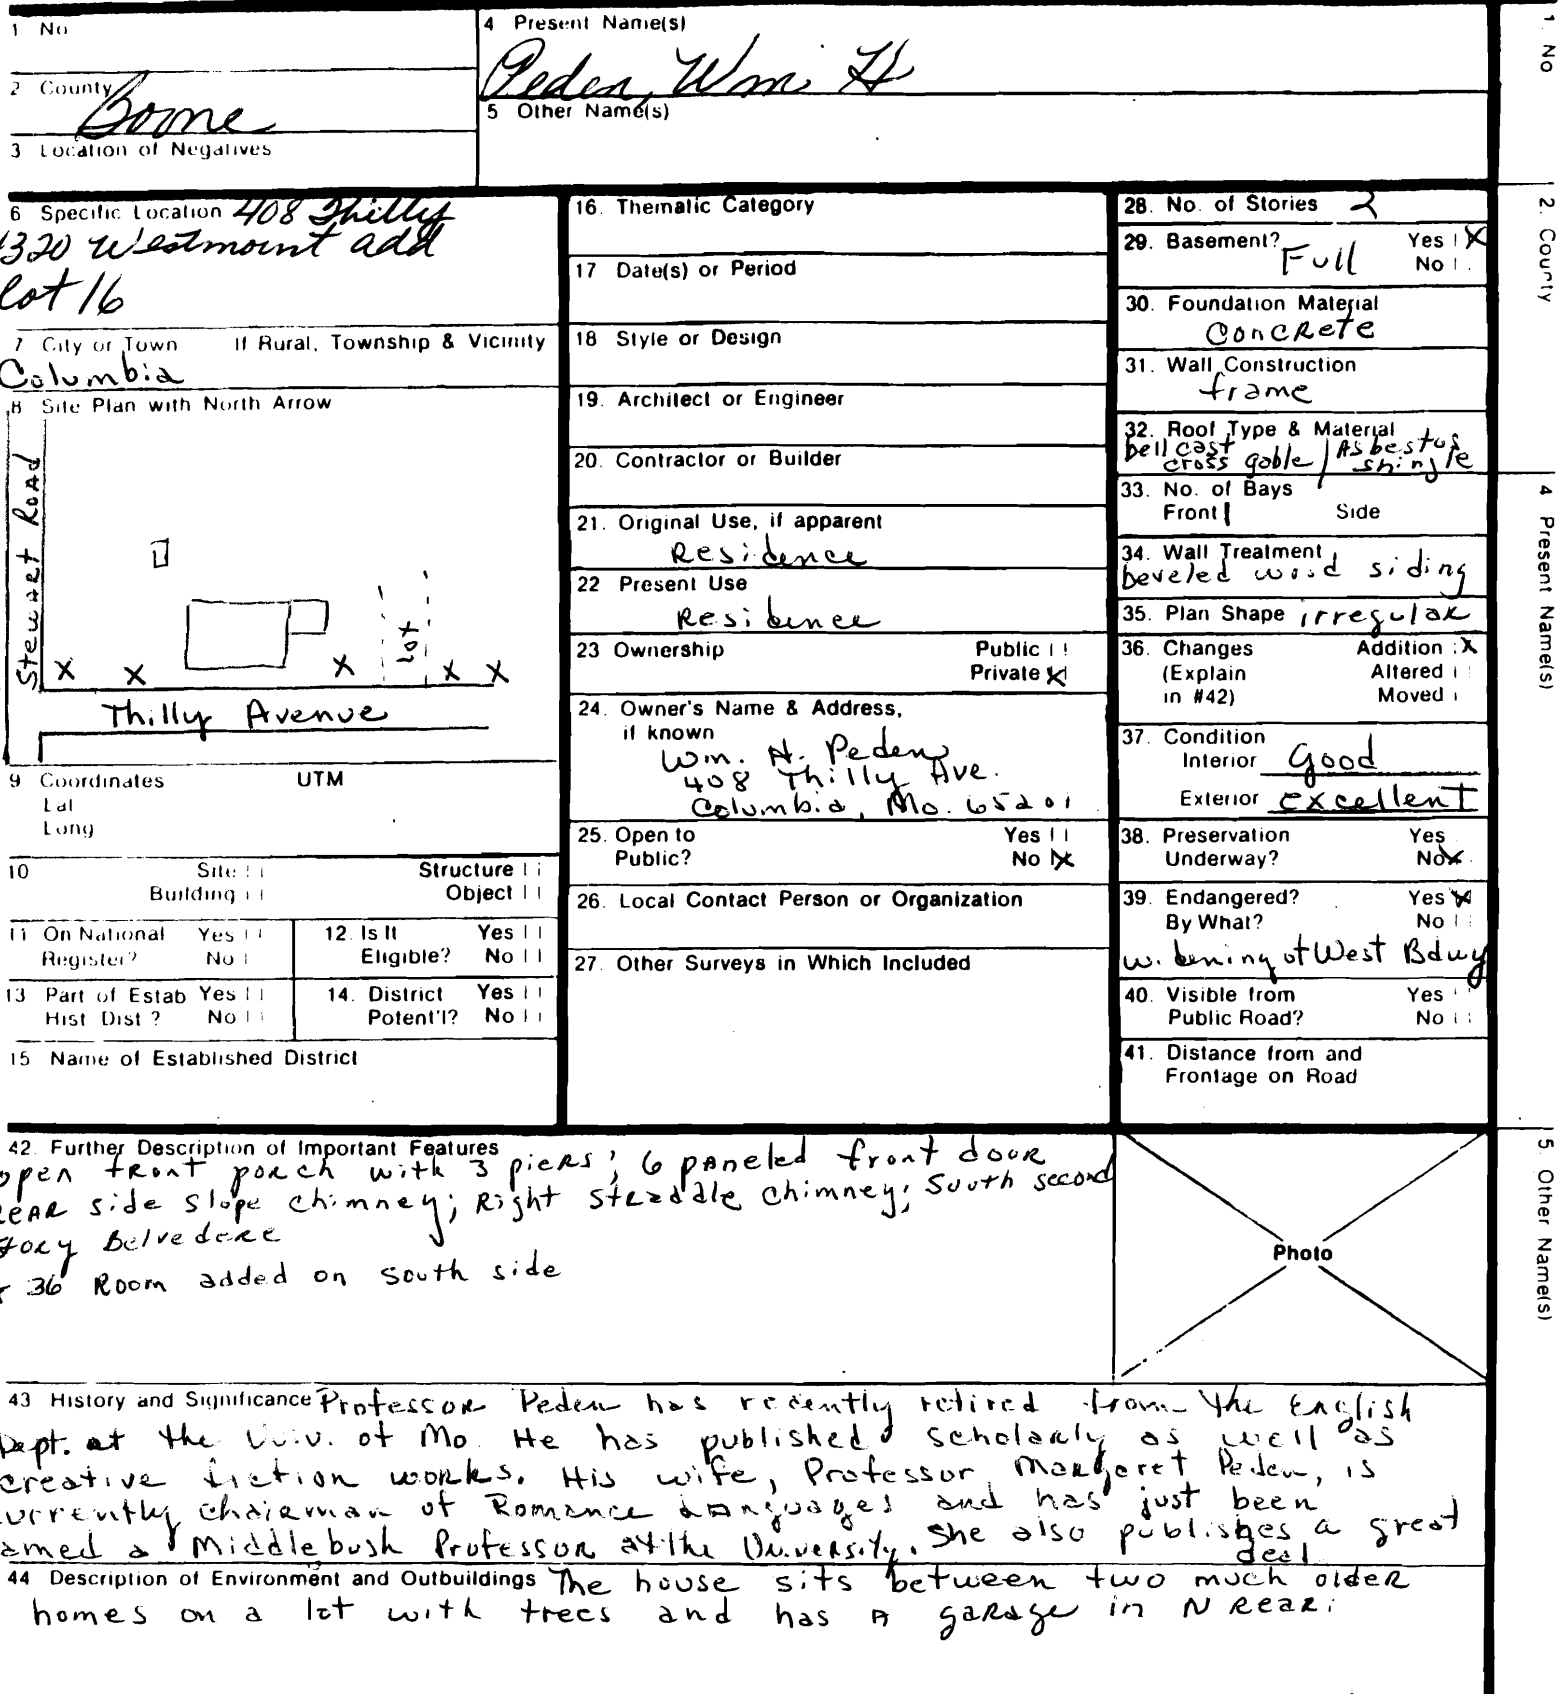 1 No
4 Present Name(s)
Peden, Wm H
2 County
Boone
5 Other Name(s)
3 Location of Negatives
6 Specific Location 408 Thilly
1320 Westmount add
Lot 16
7 City or Town If Rural, Township & Vicinity
Columbia
8 Site Plan with North Arrow
Stewart Road
x x x x x
Lot
Thilly Avenue
9 Coordinates UTM
Lat
Long
10 Site Structure
Building Object
11 On National Register? Yes No
12. Is It Eligible? Yes No
13 Part of Estab Hist Dist? Yes No
14. District Potent'l? Yes No
15 Name of Established District
16. Thematic Category
17 Date(s) or Period
18 Style or Design
19. Architect or Engineer
20. Contractor or Builder
21. Original Use, if apparent
Residence
22 Present Use
Residence
23 Ownership Public
Private X
24. Owner's Name & Address,
if known
Wm. H. Peden
408 Thilly Ave.
Columbia, Mo. 65201
25. Open to Yes
Public? No X
26. Local Contact Person or Organization
27. Other Surveys in Which Included
28. No. of Stories 2
29. Basement? Yes X
Full No
30. Foundation Material
Concrete
31. Wall Construction
frame
32. Roof Type & Material
bell cast cross gable / Asbestos shingle
33. No. of Bays
Front 1 Side
34. Wall Treatment
beveled wood siding
35. Plan Shape irregular
36. Changes Addition X
(Explain Altered
in #42) Moved
37. Condition
Interior Good
Exterior excellent
38. Preservation Yes
Underway? No X
39. Endangered? Yes X
By What? No
widening of West Bdwy
40. Visible from Yes
Public Road? No
41. Distance from and
Frontage on Road
42. Further Description of Important Features
open front porch with 3 piers; 6 paneled front door
rear side slope chimney; Right straddle chimney; South second
story Belvedere
36 Room added on south side
Photo
43 History and Significance Professor Peden has recently retired from the English
Dept. at the Univ. of Mo. He has published scholarly as well as
creative fiction works. His wife, Professor Margaret Peden, is
currently chairman of Romance Languages and has just been
named a Middlebush Professor at the University. She also publishes a great
deal
44 Description of Environment and Outbuildings The house sits between two much older
homes on a lot with trees and has a garage in N rear.
1. No
2. County
4 Present Name(s)
5. Other Name(s)